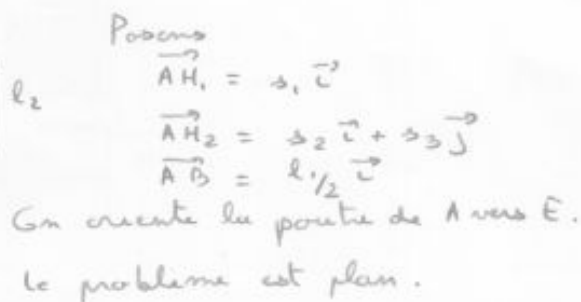 Posons
$\overrightarrow{AH_1} = s_1 \vec{i}$
l₂
$\overrightarrow{AH_2} = s_2 \vec{i} + s_3 \vec{j}$
$\overrightarrow{AB} = l_1/2 \, \vec{i}$
On oriente la poutre de A vers E.
le problème est plan.